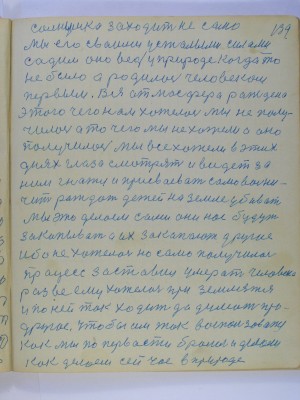 139
солнышко заходит не само
Мы его своими усталыми силами
садим оно ведь у природе когда то
не было а родилося человеком
первым. Вся атмосфера рождена
этого чего нам хотелося мы не полу-
чилося а то чего мы не хотели а оно
получилося мы всё хотели в этих
днях глаза смотрят и видят за
ним гнатся и присваевать само
чит рождат детей на земле убиват
Мы это делаем сами они нас будут
закапыват а их закапают другие
ибо не хотелося но само получилося
процес заставил умерат человека
разве ему хотелося при земле жит
и по ней так ходит да думат про
другое, чтобы им так воспользоватся
как мы по первости брали и делали
как делаем сейчас в природе